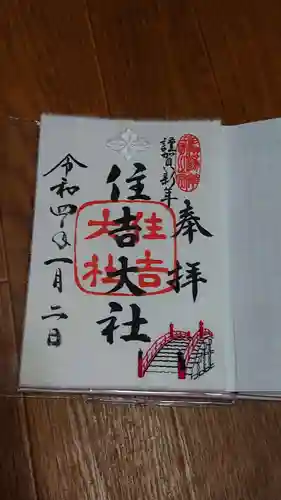 謹賀新年
奉拝
住吉大社
住吉
大社
令和四年一月二日